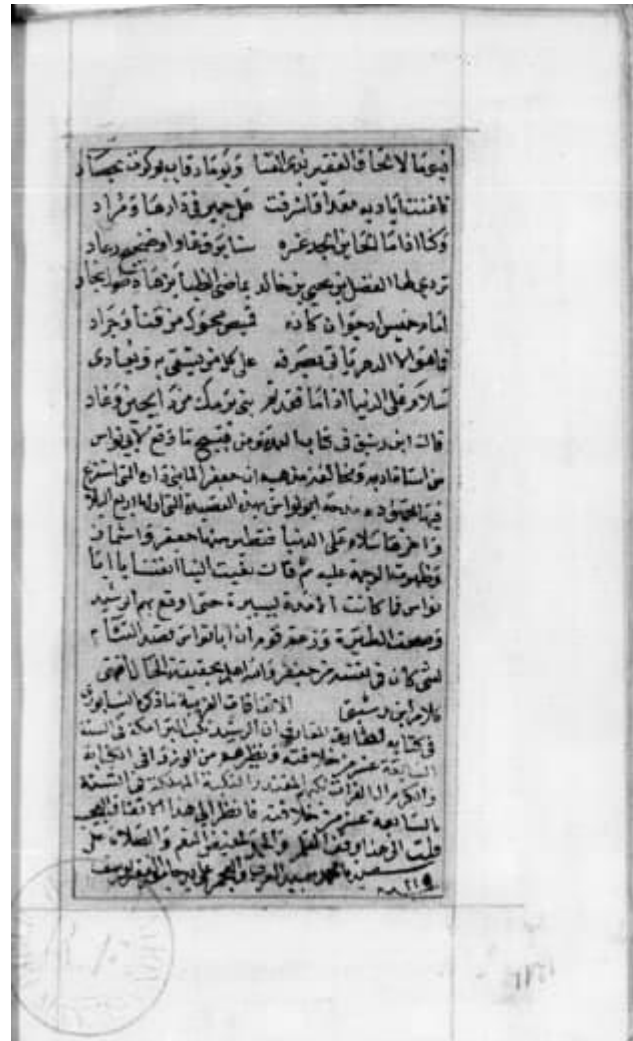 فيوما لالحاق الفقير بذى الغنا ويوما رقاب بوكرت بحصاد
فاغنت اياديه معدا واشرفت على حمير فى دارها ومراد
وكنا اذا ما الحاين الجد غره سنا برق غاو او ضجيج رعاد
تردى لها الفضل بن يحيى بن خالد بماضى الظبا يزهاه طول نجاد
امام خميس ارجوان كانه قميص محوك من قنا وجياد
فما هو الا الدهر ياتى بصرفه على كل من يشقى به ويعادى
سلام على الدنيا اذا ما فقدتم بنى برمك من رايحين وغاد
قال ابن رشيق فى كتاب العمدة ومن قبيح ما وقع لابى نواس
ان جعفرا لما بنى داره التى استفرغ
فيها مدحه ابو نواس بهذه القصيدة التى اولها اربع البلا
واخرها سلام على الدنيا فتطير منها جعفر واشماز
وظهرت الوجمة عليه ثم قال نعيت الينا انفسنا يا ابا
نواس فما كانت الا مدة يسيرة حتى اوقع بهم الرشيد
وصحت الطيرة وزعم قوم ان ابا نواس قصد التشام
لشى كان فى نفسه من جعفر والله اعلم بحقيقة الحال انتهى
كلام ابن رشيق الاتفاقات الغريبة ما ذكره
فى كتابه لطايف المعارف ان الرشيد نكب البرامكة فى السنة
السابعة عشر من خلافته ونظرهم من الوزرا فى الكفاية
والكرم ال الفرات نكبهم المقتدر النكبة المهلكة فى السنة
السابعة عشر من خلافته فانظر الى هذا الاتفاق العجيب
وليت الى هنا وقف القلم والحمد لله والصلاة على
سيدنا محمد سيد العرب والعجم